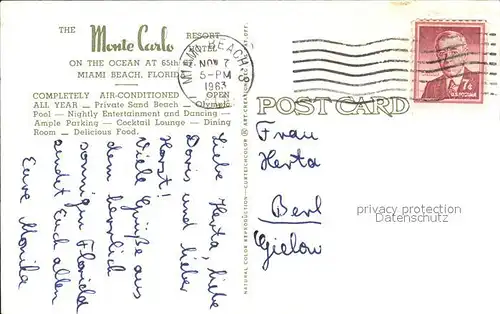 THE Monte Carlo RESORT HOTEL
ON THE OCEAN AT 65th
MIAMI BEACH, FLORIDA
COMPLETELY AIR-CONDITIONED — OPEN
ALL YEAR — Private Sand Beach — Olympic
Pool — Nightly Entertainment and Dancing —
Ample Parking — Cocktail Lounge — Dining
Room — Delicious Food.
MIAMI BEACH
NOV 7
5-PM
1963
7¢
U.S. POSTAGE
POST CARD
NATURAL COLOR REPRODUCTION - CURTEICHCOLOR ® ART CREATION
Liebe Herta, liebe
Doris und lieber
Horst!
Viele Grüße aus
dem herrlich
sonnigen Florida
sendet Euch allen
Eure Monika
Frau
Herta
Berl
Gielow
privacy protection
Datenschutz